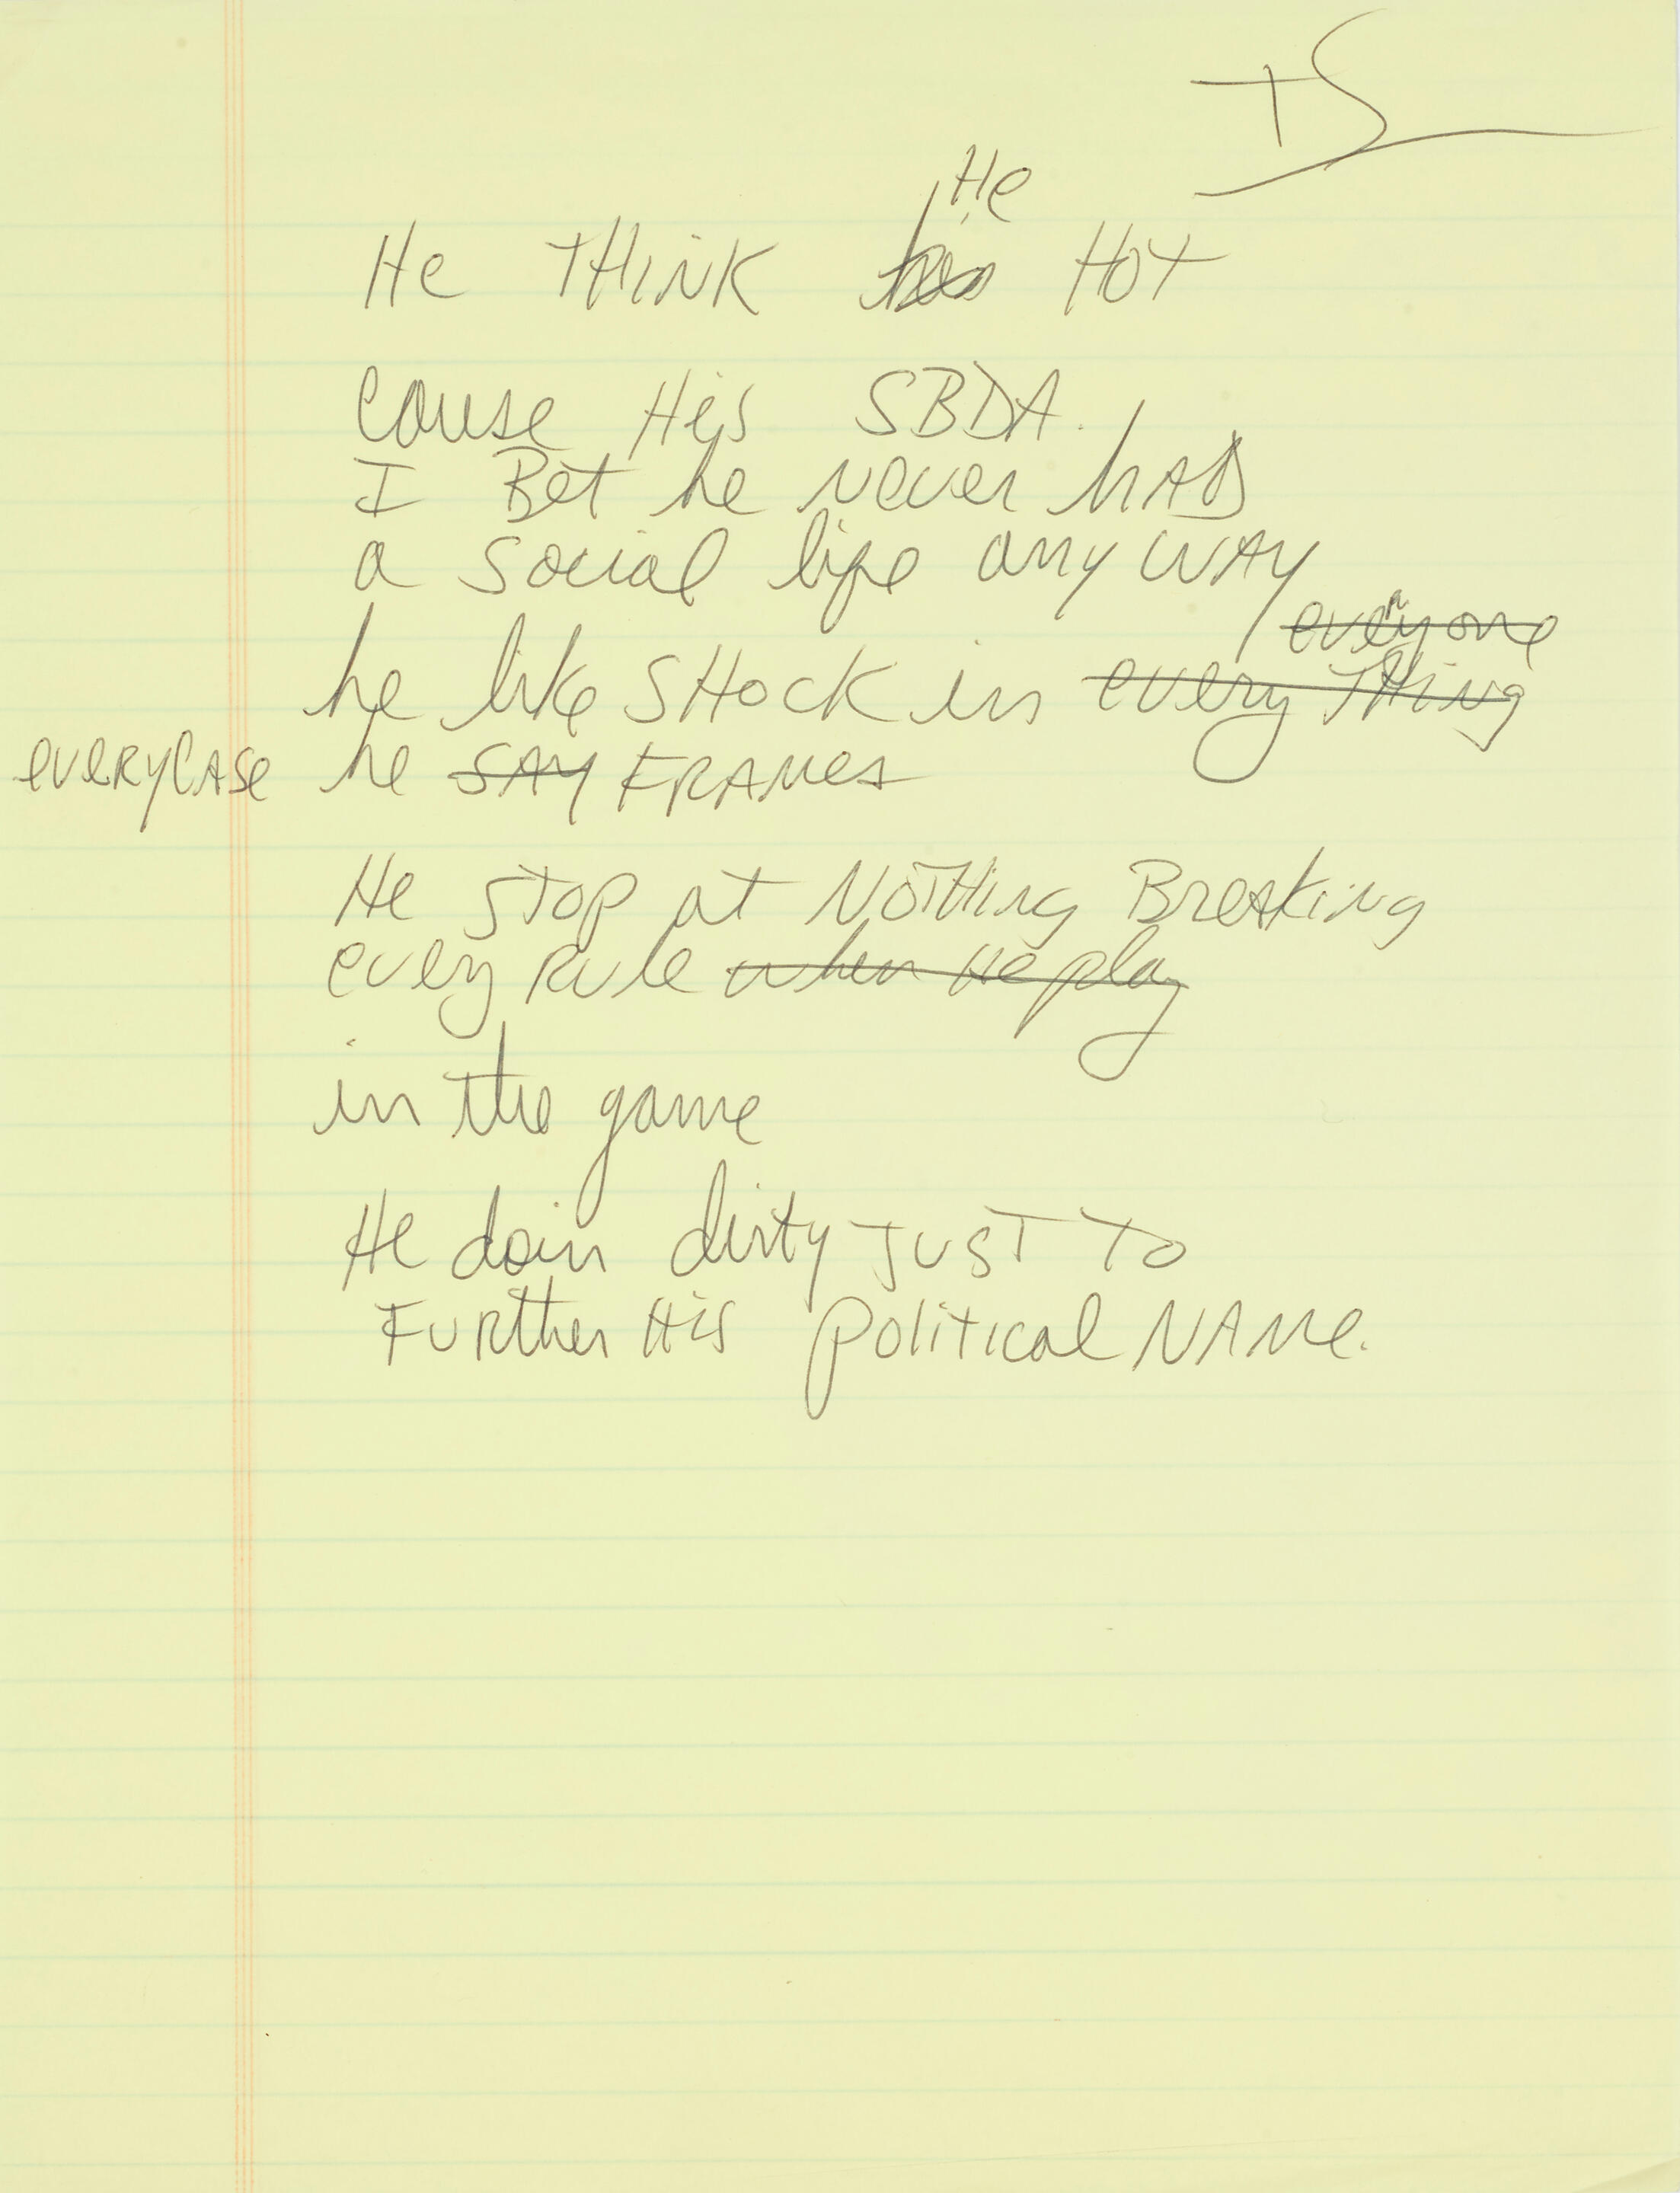 TS
He
He THINK his HOT
Cause His SBDA.
I Bet he never HAD
a social life anyWAY
everyone
he like SHOCK in every THing
everyCASE he SAY FRAMES
He STOP at NOTHing Breaking
every Rule when He play
in the game
He doin dirty JUST TO
FURther His political NAMe.